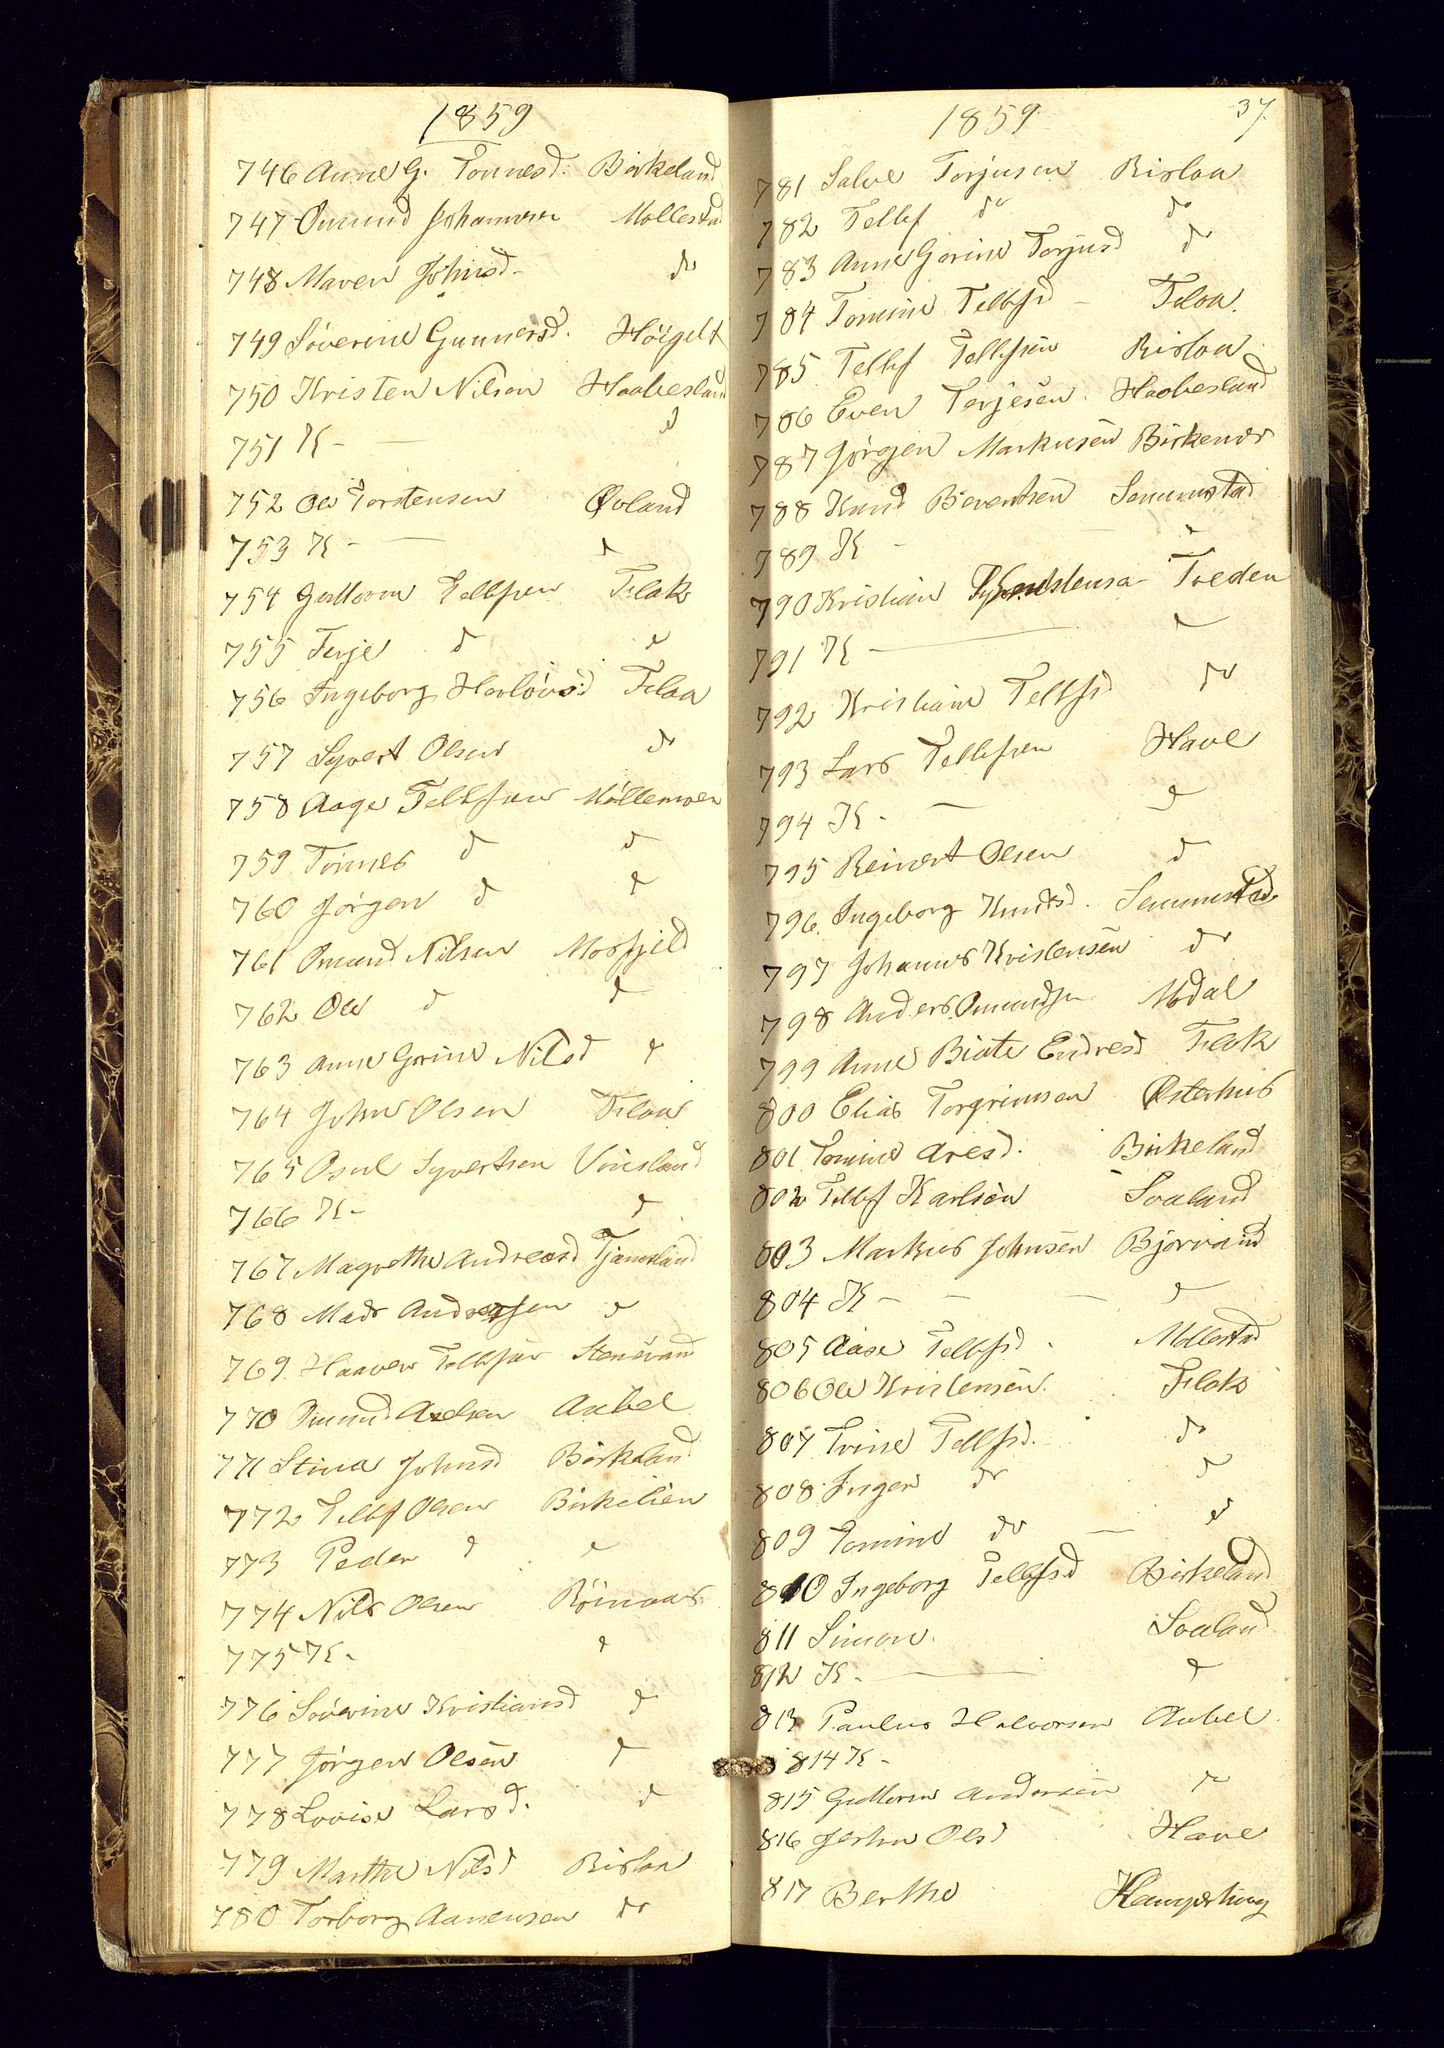 1859
746 Anne G. Tonnesd. Birkeland
747 Omund Johannesen Mollestad
748 Maren Johnsd. do
749 Søverine Gunnersd. Høigelt
750 Kristen Nilsen Haabesland
751 K - — d
752 Ole Torstensen Øvland
753 K - — d
754 Guttorm Tellefsen Flak
755 Terje d d
756 Ingeborg Herløvsd Felaa
757 Syvert Olsen do
758 Aage Tellefsen Møllemoen
759 Tønnes d d
760 Jørgen d d
761 Omund Nilsen Mosfjeld
762 Ole d d
763 Anne Gorine Nilsd d
764 John Olsen
765 Osul Syvertsen Vinsland
766 K - d
767 Magrethe Andreasd Tjameland
768 Mads Andreasen d
769 Haaver Tellefsen Stensvand
770 Omund Axelsen Axbel
771 Stina Johnsd Birkeland
772 Tellef Olsen Birkelien
773 Peder d d
774 Nils Olsen
775 K - d
776 Søverine Kristiansd d
777 Jørgen Olsen d
778 Lovise Larsd. d
779 Marthe Nilsd Rislaa
780 Torborg Aanensen do
1859. 37.
781 Salve Torjusen Rislaa
782 Tellef do do
783 Anne Gorine Torjusd do
784 Tomine Tellefsd - Felaa.
785 Tellef Tellefsen Rislaa
786 Even Terjesen. Haabesland
787 Jørgen Markusen Birkenes
788 Knud Beventsen Senumstad
789 K - — d
790 Kristian Tveden
791 K - — d
792 Kristiane Tellefsd do
793 Lars Tellefsen Have
794 K - — d
795 Reinert Olsen d
796 Ingeborg Knudsd. Senumstad
797 Johannes Kristensen do
798 Anders Omundsen Modal
799 Anne Beate Endresd Flak
800 Elias Torgrimsen Østerhus
801 Tomine Aresd. Birkeland
802 Tellef Karlsen Svaland
803 Markus Johnsen Bjorvand
804 K - - - d
805 Aase Tellefsd. Mollestad
806 Ole Kristensen. Flak
807 Trine Tellefsd. do
808 Inger do d
809 Tomine do — d
810 Ingeborg Tellefsd Birkeland
811 Simon. Svaland
812 K - — d
813 Paulus Halvorsen Axbel
814 K -
815 Guttorm Andersen do
816 Olsd Have
817 Berthe